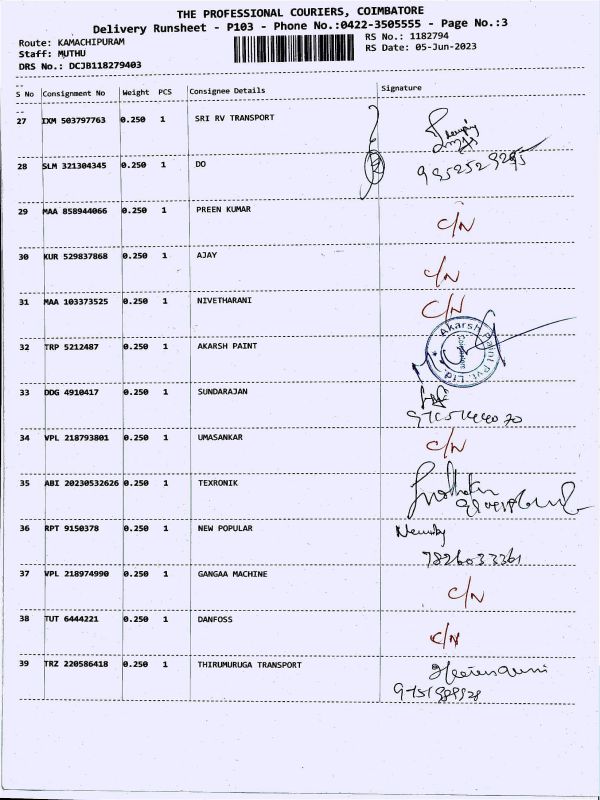 THE PROFESSIONAL COURIERS, COIMBATORE
Delivery Runsheet - P103 - Phone No.:0422-3505555 - Page No.:3
Route: KAMACHIPURAM
RS No.: 1182794
Staff: MUTHU
RS Date: 05-Jun-2023
DRS No.: DCJB118279403
S No Consignment No Weight PCS Consignee Details Signature
27 IXM 503797763 0.250 1 SRI RV TRANSPORT
28 SLM 321304345 0.250 1 DO
29 MAA 858944066 0.250 1 PREEN KUMAR C/N
30 KUR 529837868 0.250 1 AJAY C/N
31 MAA 103373525 0.250 1 NIVETHARANI C/N
32 TRP 5212487 0.250 1 AKARSH PAINT
Akarsh Paint Pvt. Ltd.
33 DDG 4910417 0.250 1 SUNDARAJAN
34 VPL 218793801 0.250 1 UMASANKAR C/N
35 ABI 20230532626 0.250 1 TEXRONIK
36 RPT 9150378 0.250 1 NEW POPULAR
7826033361
37 VPL 218974990 0.250 1 GANGAA MACHINE C/N
38 TUT 6444221 0.250 1 DANFOSS C/N
39 TRZ 220586418 0.250 1 THIRUMURUGA TRANSPORT